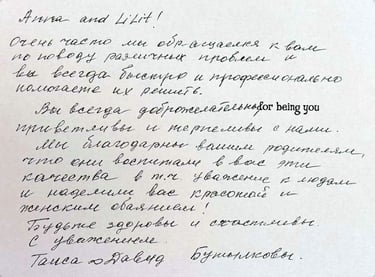 Anna and Lilit!
Очень часто мы обращаемся к вам
по поводу различных проблем и
вы всегда быстро и профессионально
помогаете их решить.
Вы всегда доброжелательны for being you
приветливы и терпеливы с нами.
Мы благодарны вашим родителям,
что они воспитали в вас эти
качества в т.ч уважение к людям
и наделили вас красотой и
женским обаянием!
Будьте здоровы и счастливы.
С уважением.
Таиса и Давид Бутылковы.